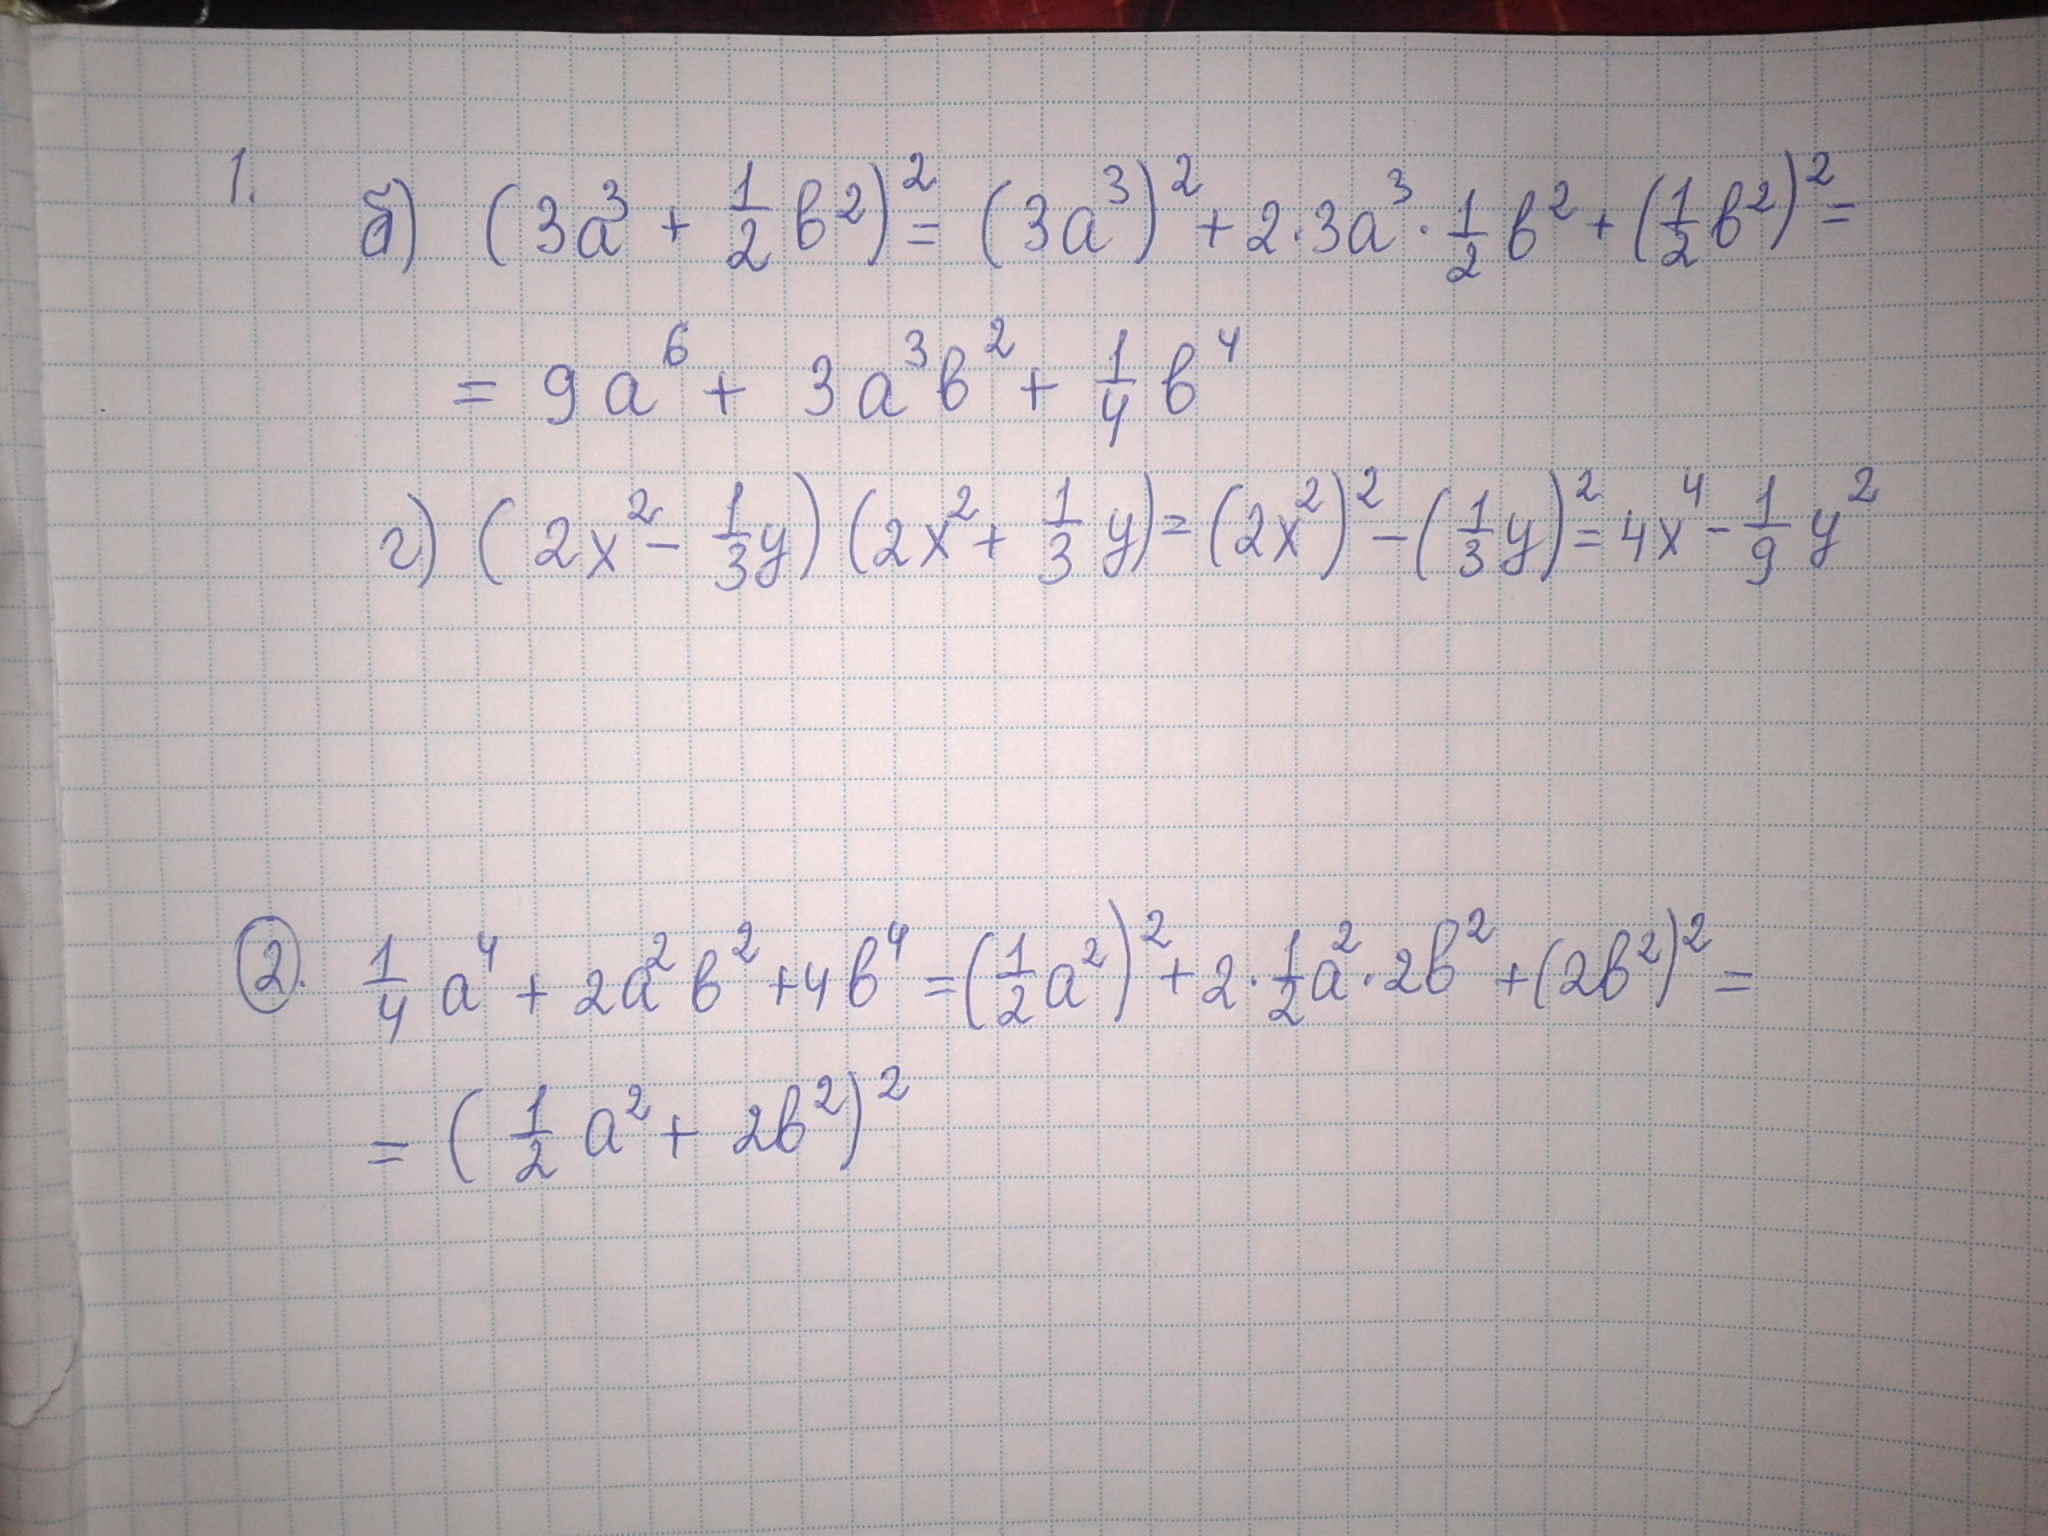 1. б) (3a³ + 1/2 b²)² = (3a³)² + 2·3a³·1/2 b² + (1/2 b²)² =
= 9a⁶ + 3a³b² + 1/4 b⁴
г) (2x² - 1/3 y)(2x² + 1/3 y) = (2x²)² - (1/3 y)² = 4x⁴ - 1/9 y²
2. 1/4 a⁴ + 2a²b² + 4b⁴ = (1/2 a²)² + 2·1/2 a²·2b² + (2b²)² =
= (1/2 a² + 2b²)²